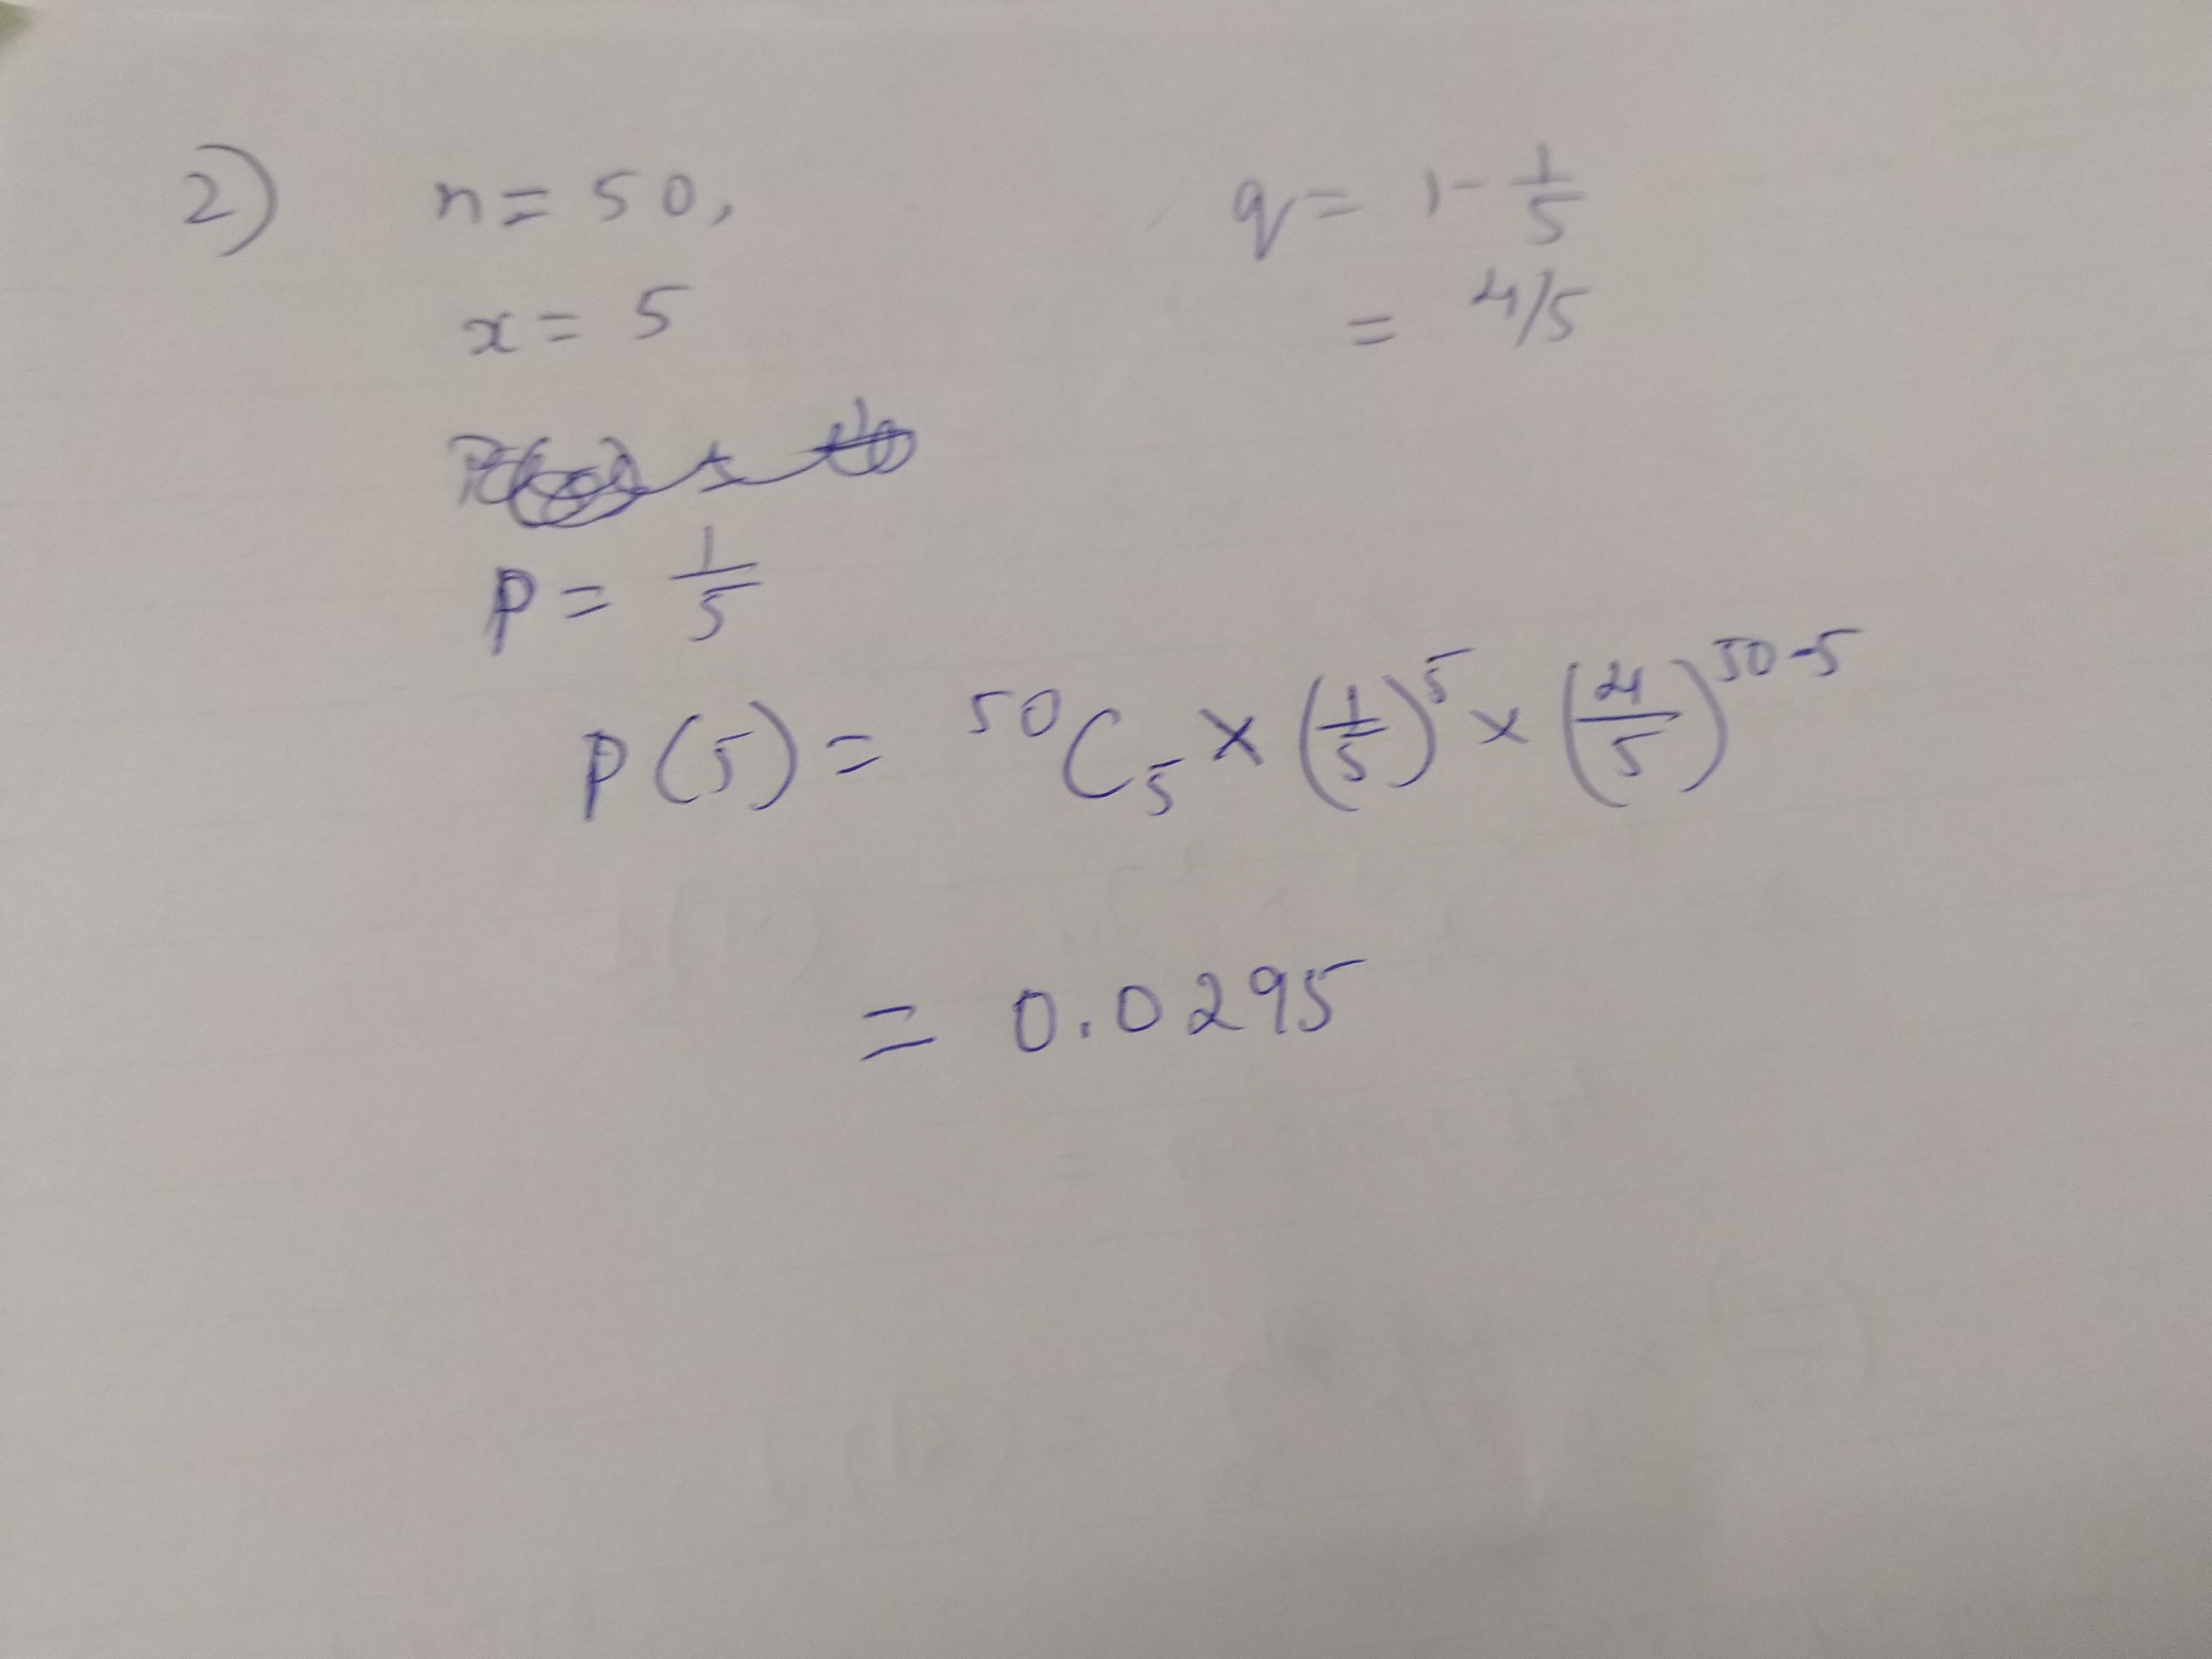 2) n = 50, q = 1 - 1/5
x = 5 = 4/5
p = 1/5
p(5) = ⁵⁰C₅ × (1/5)⁵ × (4/5)⁵⁰⁻⁵
= 0.0295